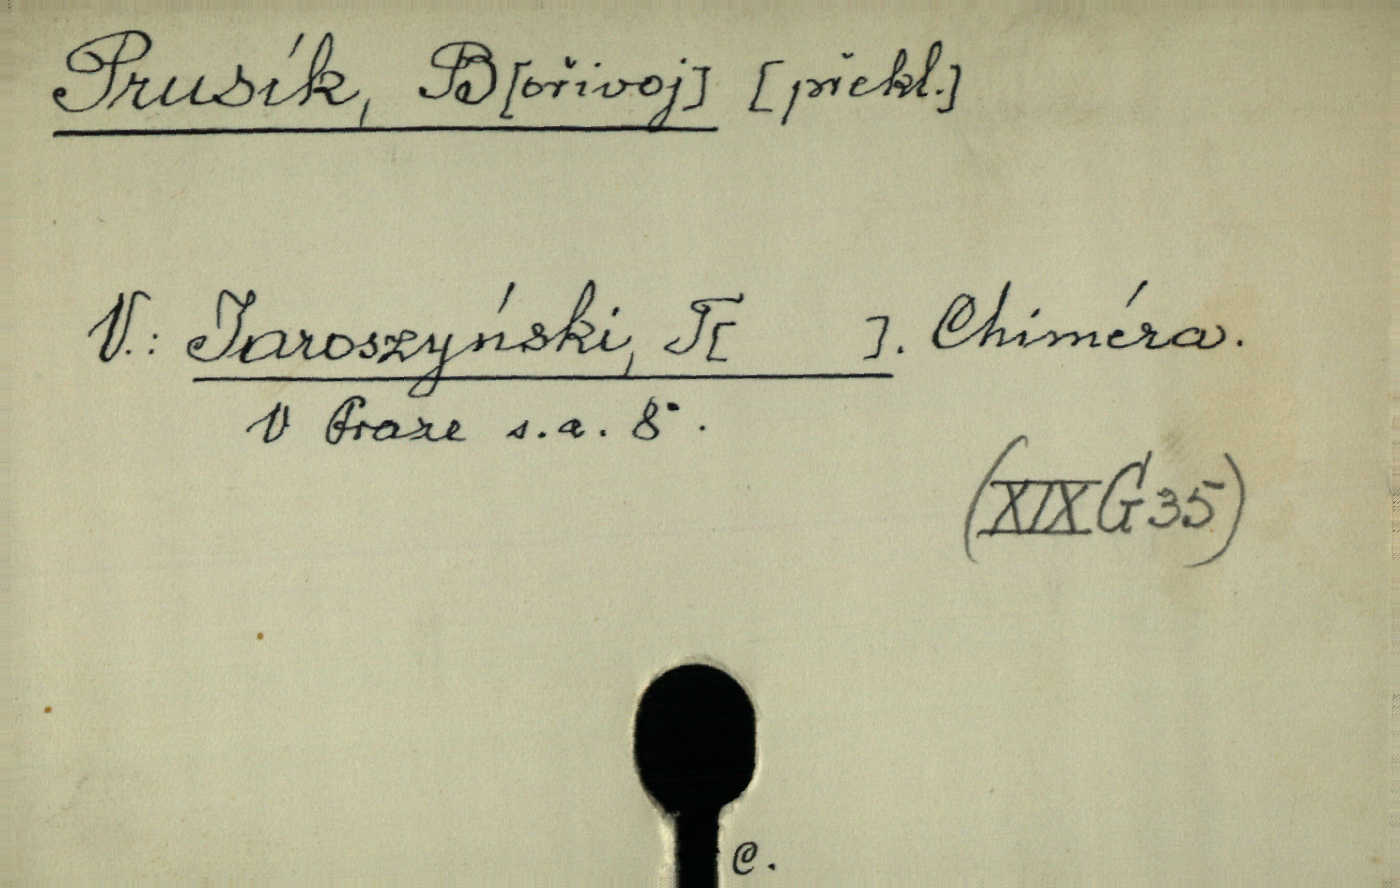 Prusík, B[ořivoj] [překl.]
V.: Jaroszyński, T[ ]. Chiméra.
V Praze s.a. 8°.
(XIX G 35)
C.